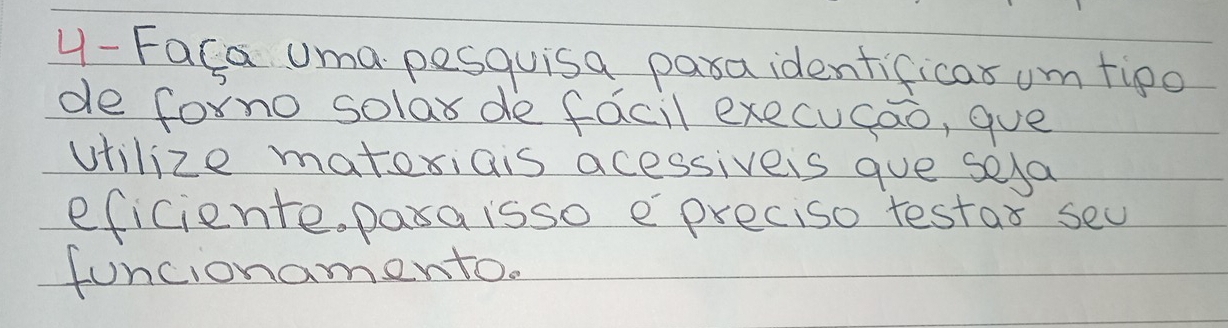 4- Faça uma pesquisa para identificar um tipo
de forno solar de fácil execução, que
utilize materiais acessiveis que seja
eficiente. para isso é preciso testar seu
funcionamento.